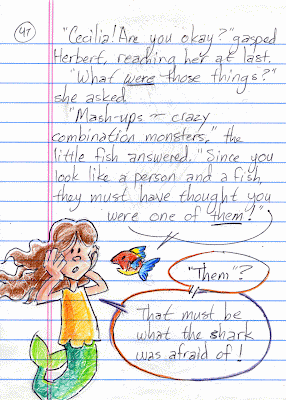 47
"Cecilia! Are you okay?" gasped
Herbert, reaching her at last.
"What were those things?"
she asked.
"Mash-ups – crazy
combination monsters," the
little fish answered. "Since you
look like a person and a fish,
they must have thought you
were one of them!"
"Them"?
That must be
what the shark
was afraid of!